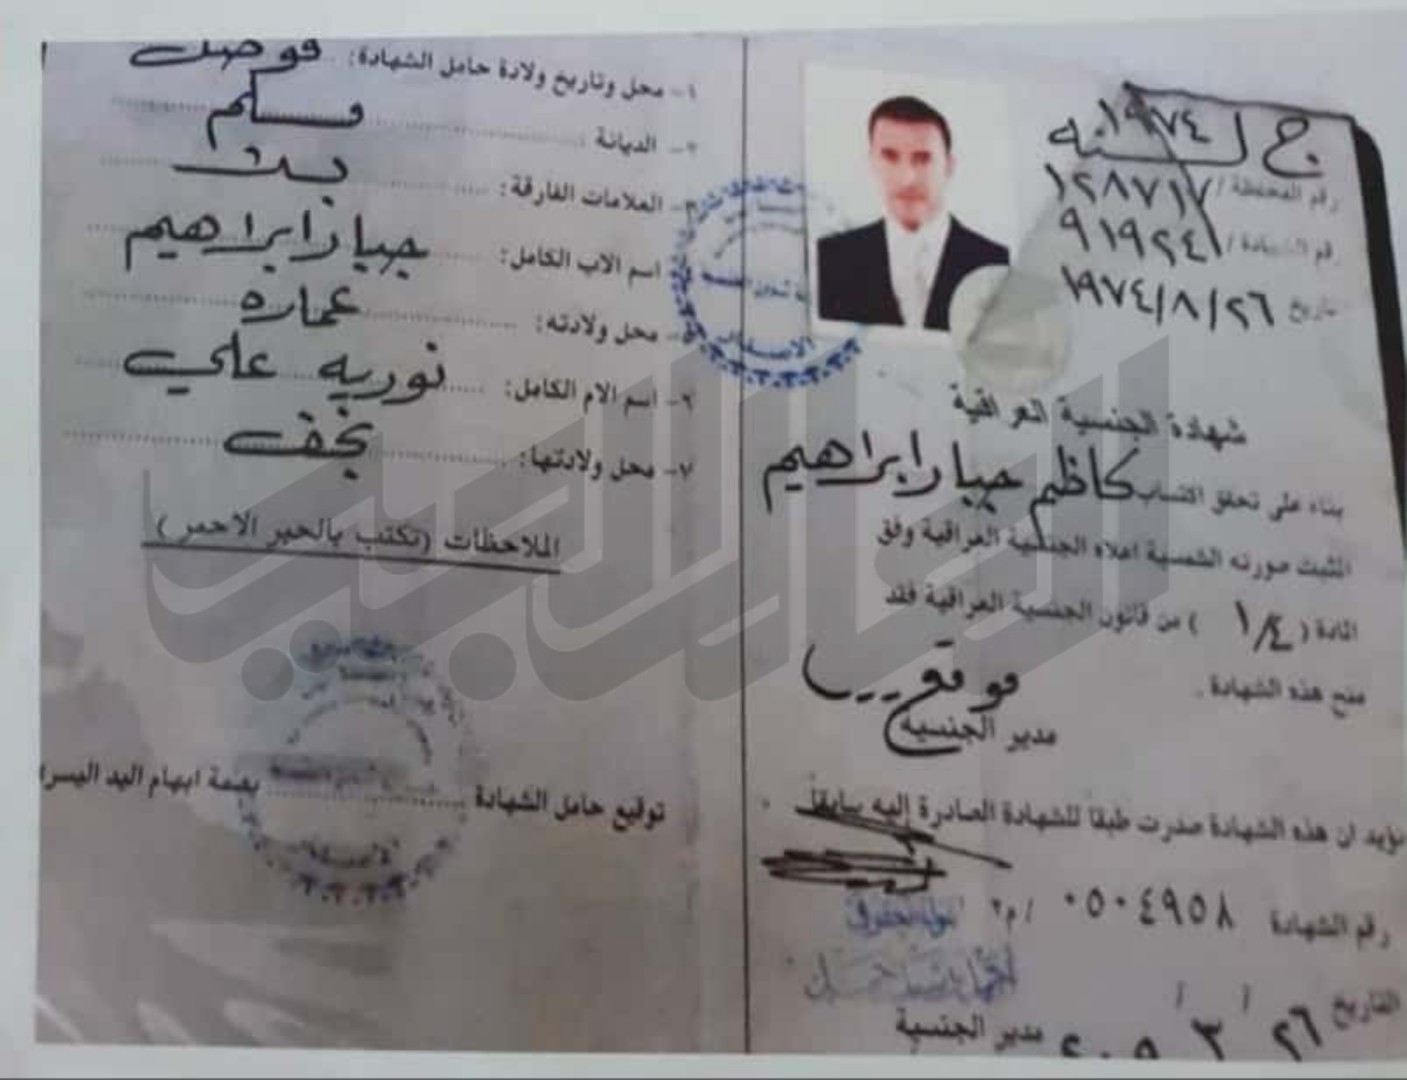 ج لسنه ١٩٧٤
رقم المحفظة / ١٢٨٧١٧
رقم الشهادة / ٩١٩٢٤١
تاريخ ١٩٧٤/٨/٢٦
شهادة الجنسية العراقية
بناء على تحقق اكتساب كاظم جبار ابراهيم
المثبت صورته الشمسية اعلاه الجنسية العراقية وفق
المادة ( ١/٤ ) من قانون الجنسية العراقية فقد
منح هذه الشهادة .
موقع
مدير الجنسية
نؤيد ان هذه الشهادة صدرت طبقا للشهادة الصادرة إليه سابقا .
رقم الشهادة ٠٥٠٤٩٥٨ / م٢
التاريخ ٢٦ / ٣ /
مدير الجنسية
١- محل وتاريخ ولادة حامل الشهادة:
٢- الديانة : مسلم
٣- العلامات الفارقة:
اسم الاب الكامل: جبار ابراهيم
٥- محل ولادته: عماره
٦- اسم الام الكامل: نوريه علي
٧- محل ولادتها: نجف
الملاحظات (تكتب بالحبر الاحمر)
توقيع حامل الشهادة بصمة ابهام اليد اليسرا
الاصدار